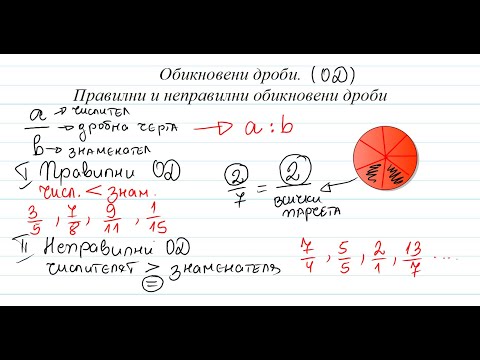 Обикновени дроби. (ОД)
Правилни и неправилни обикновени дроби
a → числител
— → дробна черта → a : b
b → знаменател
I Правилни ОД
числ. < знам.
3/5, 7/8, 9/11, 1/15
2/7 = 2 / всички парчета
II Неправилни ОД
числителят > = знаменателя
7/4, 5/5, 2/1, 13/7 ....